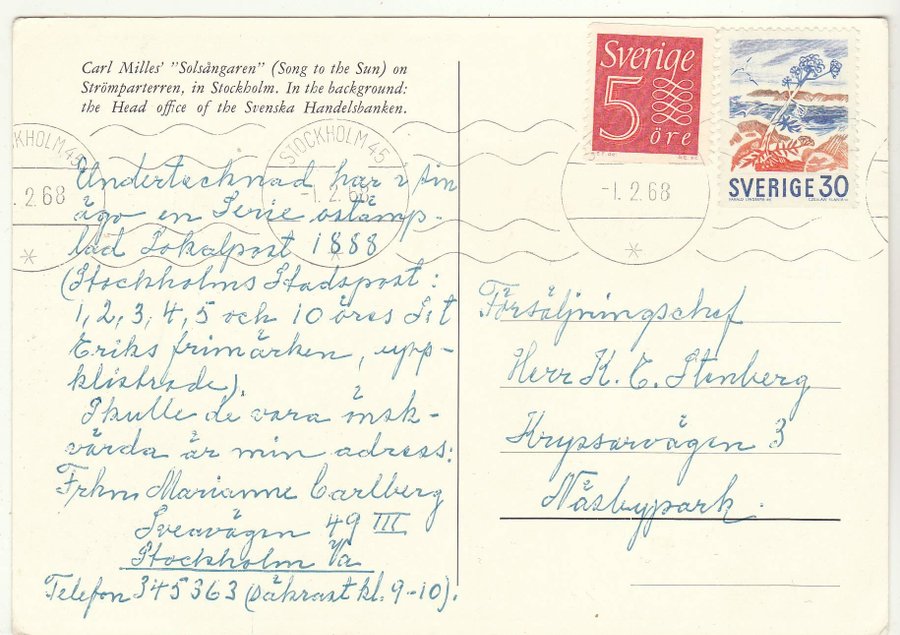 Carl Milles' "Solsångaren" (Song to the Sun) on
Strömparterren, in Stockholm. In the background:
the Head office of the Svenska Handelsbanken.
Sverige
5
öre
SVERIGE 30
STOCKHOLM 45
-1. 2. 68
KHOLM 45
1. 2. 68
-1. 2. 68
Undertecknad har i sin
ägo en Serie ostämp-
lad Lokalpost 1888
(Stockholms Stadspost:
1, 2, 3, 4, 5 och 10 öres S:t
Eriks frimärken, upp-
klistrade).
Skulle de vara önsk-
värda är min adress:
Frkn Marianne Carlberg
Sveavägen 49 III
Stockholm Va
Telefon 345363 (säkrast kl. 9-10).
Försäljningschef
Herr K. E. Stenberg
Kryssarvägen 3
Näsbypark.